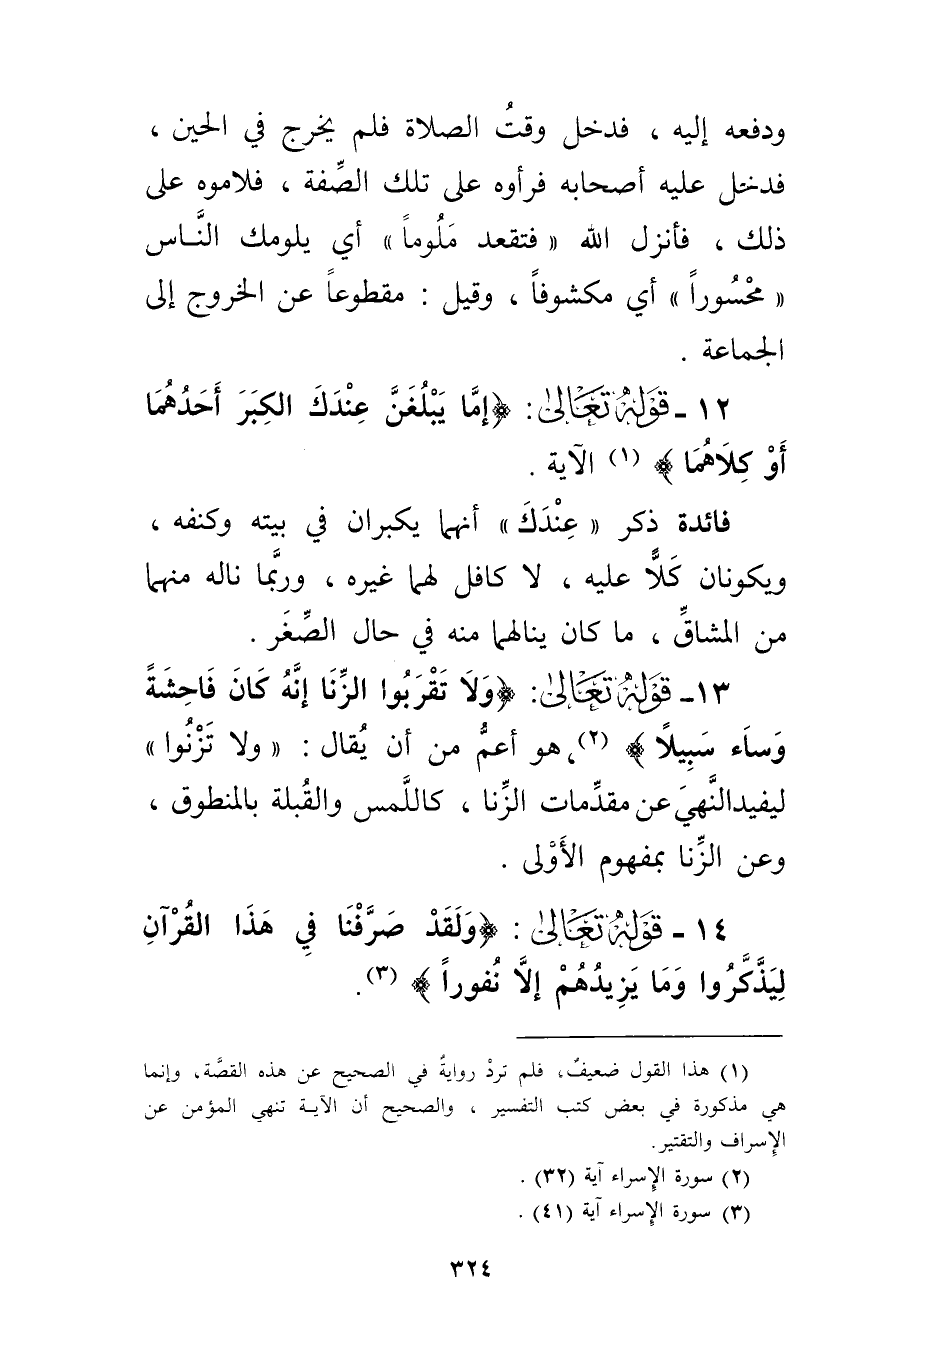 ودفعه إليه ، فدخل وقتُ الصلاة فلم يخرج في الحين ،
فدخل عليه أصحابه فرأوه على تلك الصِّفة ، فلاموه على
ذلك ، فأنزل الله « فتقعد مَلُوماً » أي يلومك النَّاس
« مَحْسُوراً » أي مكشوفاً ، وقيل : مقطوعاً عن الخروج إلى
الجماعة .
١٢ - قَوْلُهُ تَعَالَىٰ : ﴿إمَّا يَبْلُغَنَّ عِنْدَكَ الكِبَرَ أَحَدُهُمَا
أَوْ كِلَاهُمَا ﴾ (١) الآية .
فائدة ذكر « عِنْدَكَ » أنهما يكبران في بيته وكنفه ،
ويكونان كَلاًّ عليه ، لا كافل لهما غيره ، وربَّما ناله منهما
من المشاقِّ ، ما كان ينالهما منه في حال الصِّغَر .
١٣ - قَوْلُهُ تَعَالَىٰ : ﴿وَلَا تَقْرَبُوا الزِّنَا إنَّهُ كَانَ فَاحِشَةً
وَساَء سَبِيلاً ﴾ (٢)، هو أعمُّ من أن يُقال : « ولا تَزْنُوا »
ليفيدالنَّهيَ عن مقدِّمات الزِّنا ، كاللَّمس والقُبلة بالمنطوق ،
وعن الزِّنا بمفهوم الأَوْلى .
١٤ - قَوْلُهُ تَعَالَىٰ : ﴿وَلَقَدْ صَرَّفْنَا فِي هَذَا القُرْآنِ
لِيَذَّكَّرُوا وَمَا يَزِيدُهُمْ إلاَّ نُفوراً ﴾ (٣).
(١) هذا القول ضعيفٌ، فلم تردْ روايةٌ في الصحيح عن هذه القصَّة، وإنما
هي مذكورة في بعض كتب التفسير ، والصحيح أن الآية تنهي المؤمن عن
الإسراف والتقتير.
(٢) سورة الإسراء آية (٣٢) .
(٣) سورة الإسراء آية (٤١) .
٣٢٤